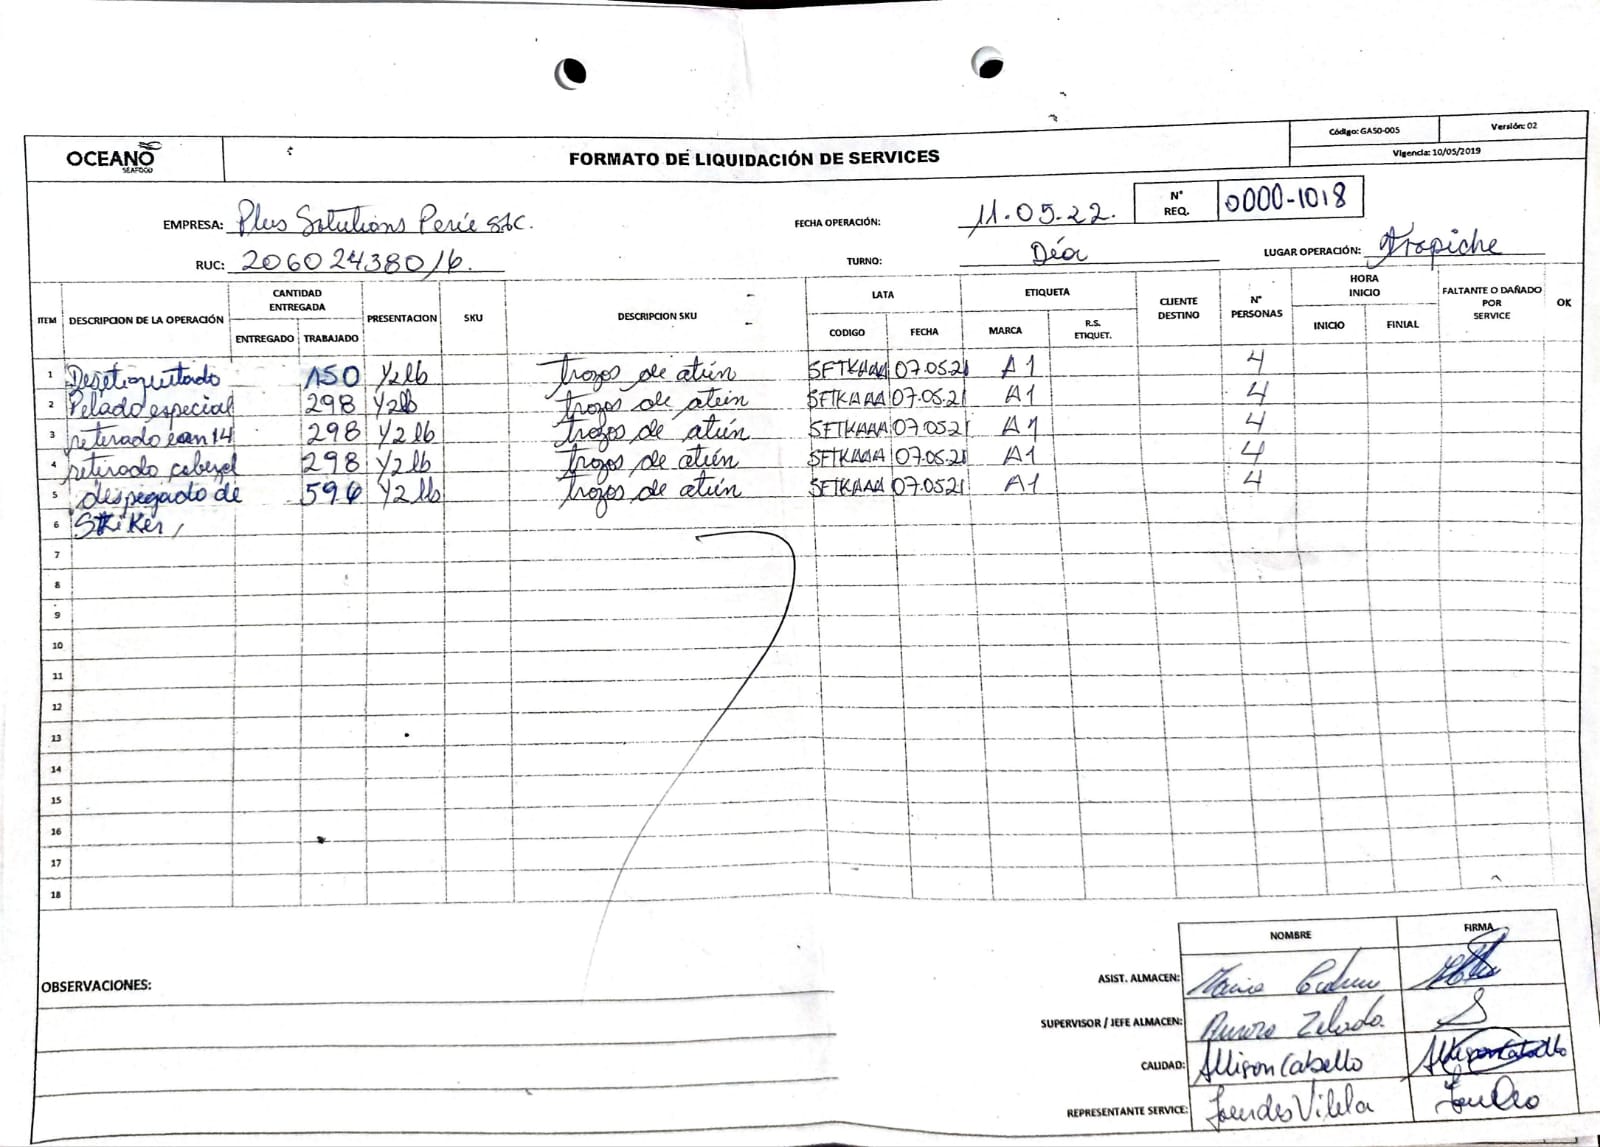 OCEANO
SEAFOOD
FORMATO DE LIQUIDACIÓN DE SERVICES
Código: GASO-005
Versión: 02
Vigencia: 10/05/2019
EMPRESA: Plus Solutions Perú SAC.
FECHA OPERACIÓN: 11.05.22.
N° REQ. 0000-1018
RUC: 20602438016.
TURNO: Día
LUGAR OPERACIÓN: Trapiche
ITEM DESCRIPCION DE LA OPERACIÓN CANTIDAD ENTREGADA ENTREGADO TRABAJADO PRESENTACION SKU DESCRIPCION SKU LATA CODIGO FECHA ETIQUETA MARCA R.S. ETIQUET. CLIENTE DESTINO N° PERSONAS HORA INICIO INICIO FINIAL FALTANTE O DAÑADO POR SERVICE OK
1 Desetiquetado 150 1/2lb trozos de atún SFTKAAA 07.05.21 A1 4
2 Pelado especial 298 1/2lb trozos de atún SFTKAAA 07.05.21 A1 4
3 retirado ean14 298 1/2 lb trozos de atún SFTKAAA 07.05.21 A1 4
4 retirado cabezal 298 1/2 lb trozos de atún SFTKAAA 07.05.21 A1 4
5 despegado de 596 1/2 lb trozos de atún SFTKAAA 07.05.21 A1 4
6 Stiker,
7
8
9
10
11
12
13
14
15
16
17
18
OBSERVACIONES:
NOMBRE FIRMA
ASIST. ALMACEN:
SUPERVISOR / JEFE ALMACEN: Aurora Zelada.
CALIDAD: Allison Cabello Allison Cabello
REPRESENTANTE SERVICE: Lourdes Vilela